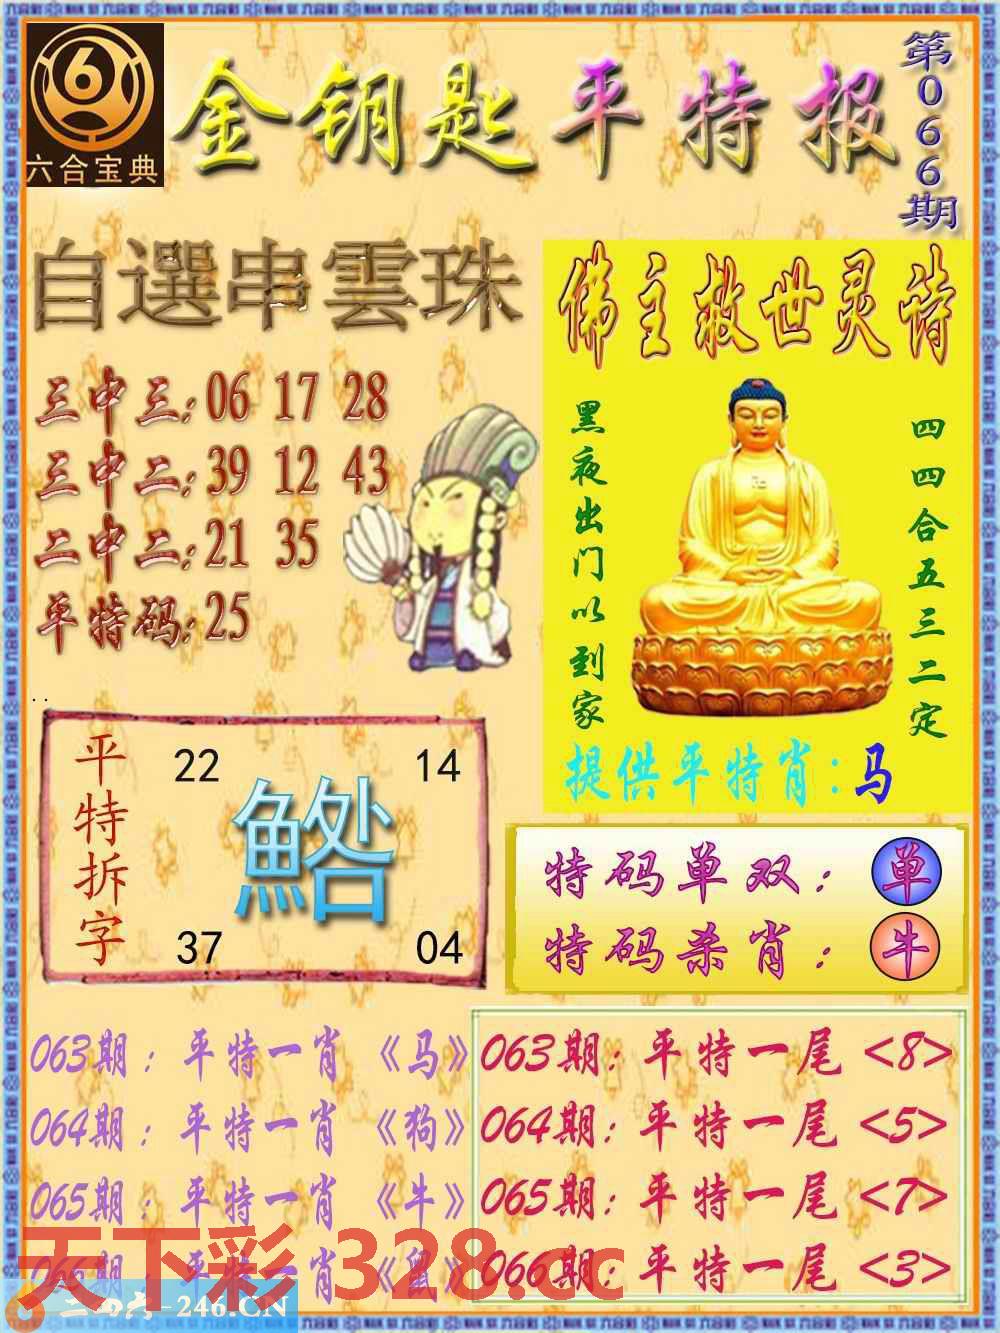 六合宝典
金钥匙平特报
第066期
自選串雲珠
三中三:06 17 28
三中二:39 12 43
二中二:21 35
平特码:25
佛主救世灵诗
黑夜出门以到家
四四合五三二定
提供平特肖:马
平特拆字
22 14
37 04
特码单双:单
特码杀肖:牛
063期:平特一肖《马》
064期:平特一肖《狗》
065期:平特一肖《牛》
066期:平特一肖《鼠》
063期:平特一尾<8>
064期:平特一尾<5>
065期:平特一尾<7>
066期:平特一尾<3>
天下彩 328.cc
二四六-246.CN